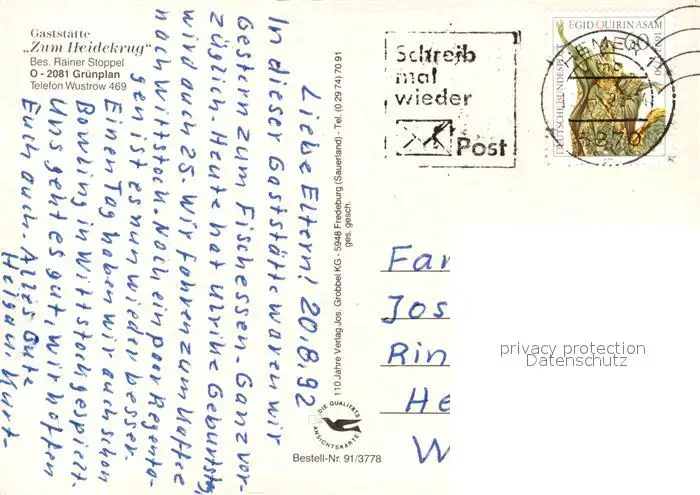 Gaststätte
„Zum Heidekrug“
Bes. Rainer Stoppel
O - 2081 Grünplan
Telefon Wustrow 469
Liebe Eltern! 20.8.92
In dieser Gaststätte waren wir
Gestern zum Fischessen. Ganz vor-
züglich. Heute hat Ulrike Geburtstg,
wird auch 25. Wir fahren zum Kaffee
noch Wittstock. Noch ein poor Regenta-
gen ist es nun wieder besser.
Einen Tag haben wir auch schon
Bowling in Wittstock gespielt.
Uns geht es gut, wir hoffen
Euch auch. Alles Gute
Helga u. Kurt-
110 Jahre Verlag Jos. Grobbel KG - 5948 Fredeburg (Sauerland) - Tel. (0 29 74) 70 91
ges. gesch.
DIE QUALITÄTS
ANSICHTSKARTE
Bestell-Nr. 91/3778
Schreib
mal
wieder
Post
EGID QUIRIN ASAM
60
DEUTSCHE BUNDESPOST
Fam
Jos
Rin
He
W
privacy protection
Datenschutz